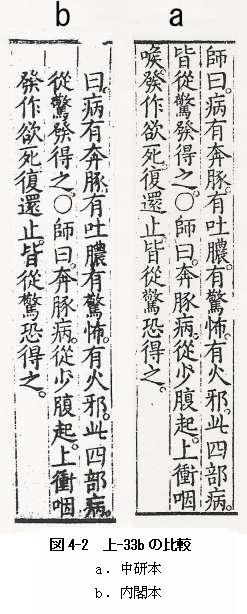 b
a
師曰。病有奔豚。有吐膿。有驚怖。有火邪。此四部病。
皆從驚發得之。〇師曰。奔豚病。從少腹起。上衝咽
喉發作欲死。復還止皆從驚恐得之。
曰。病有奔豚。有吐膿。有驚怖。有火邪。此四部病。
從驚發得之。〇師曰。奔豚病。從少腹起。上衝咽
發作欲死復還止。皆從驚恐得之。
図4-2　上-33bの比較
a．中研本
b．内閣本